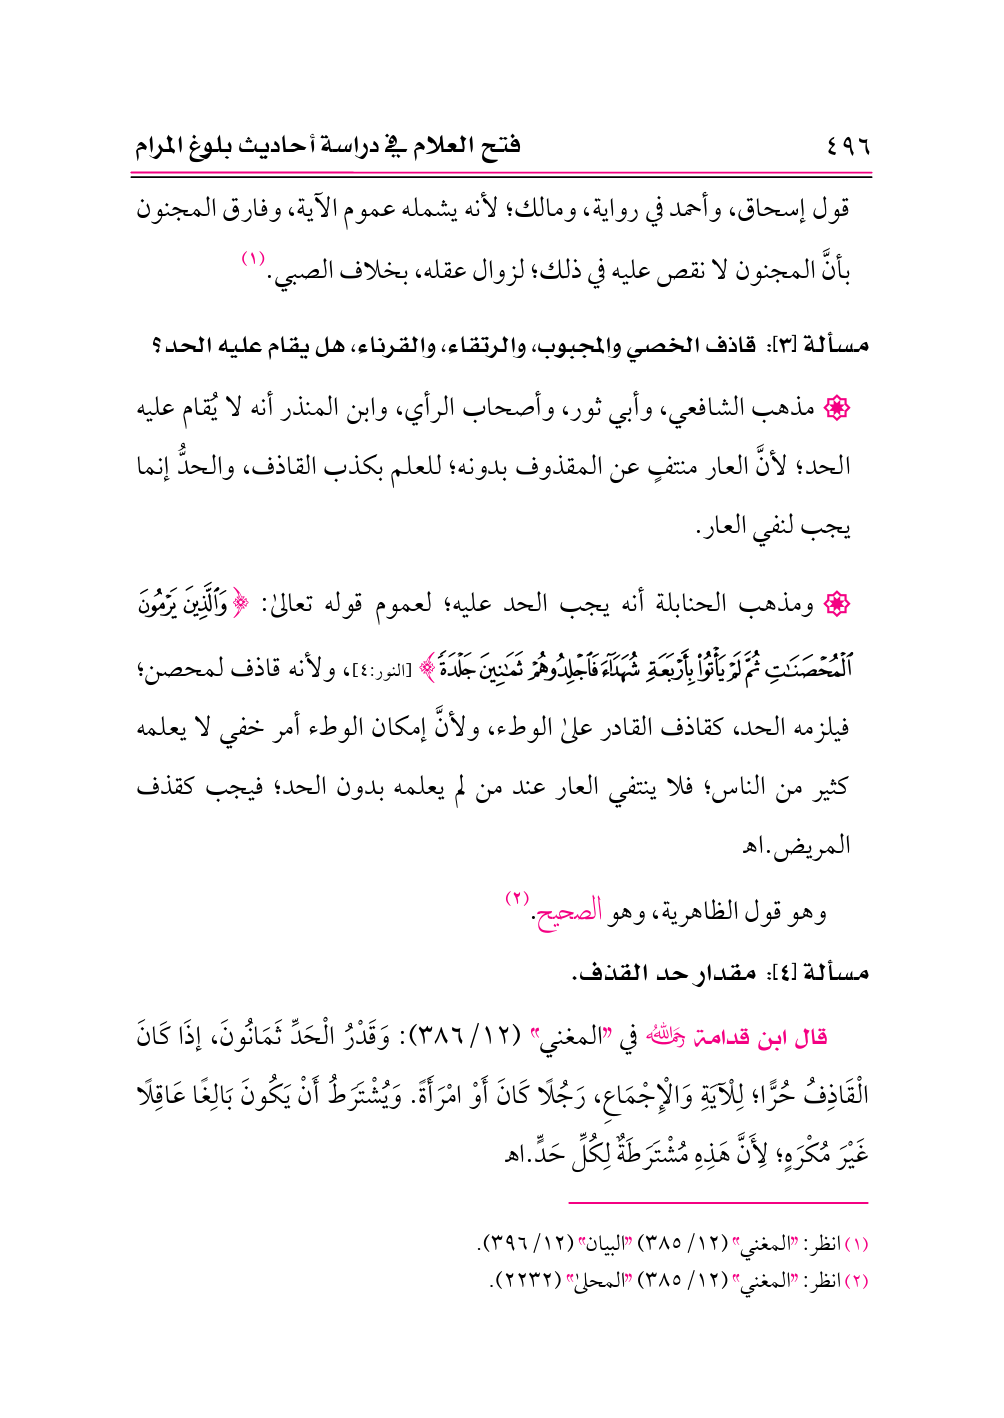 ٤٩٦ فتح العلام في دراسة أحاديث بلوغ المرام
قول إسحاق، وأحمد في رواية، ومالك؛ لأنه يشمله عموم الآية، وفارق المجنون
بأنَّ المجنون لا نقص عليه في ذلك؛ لزوال عقله، بخلاف الصبي.(١)
مسألة [٣]: قاذف الخصي والمجبوب، والرتقاء، والقرناء، هل يقام عليه الحد؟
مذهب الشافعي، وأبي ثور، وأصحاب الرأي، وابن المنذر أنه لا يُقام عليه
الحد؛ لأنَّ العار منتفٍ عن المقذوف بدونه؛ للعلم بكذب القاذف، والحدُّ إنما
يجب لنفي العار.
ومذهب الحنابلة أنه يجب الحد عليه؛ لعموم قوله تعالىٰ: ﴿وَٱلَّذِينَ يَرۡمُونَ
ٱلۡمُحۡصَنَـٰتِ ثُمَّ لَمۡ يَأۡتُواْ بِأَرۡبَعَةِ شُهَدَآءَ فَٱجۡلِدُوهُمۡ ثَمَـٰنِينَ جَلۡدَةٗ﴾ [النور:٤]، ولأنه قاذف لمحصن؛
فيلزمه الحد، كقاذف القادر علىٰ الوطء، ولأنَّ إمكان الوطء أمر خفي لا يعلمه
كثير من الناس؛ فلا ينتفي العار عند من لم يعلمه بدون الحد؛ فيجب كقذف
المريض.اهـ
وهو قول الظاهرية، وهو الصحيح.(٢)
مسألة [٤]: مقدار حد القذف.
قال ابن قدامة رحمه الله في "المغني" (١٢/ ٣٨٦): وَقَدْرُ الْحَدِّ ثَمَانُونَ، إذَا كَانَ
الْقَاذِفُ حُرًّا؛ لِلْآيَةِ وَالْإِجْمَاعِ، رَجُلًا كَانَ أَوْ امْرَأَةً. وَيُشْتَرَطُ أَنْ يَكُونَ بَالِغًا عَاقِلًا
غَيْرَ مُكْرَهٍ؛ لِأَنَّ هَذِهِ مُشْتَرَطَةٌ لِكُلِّ حَدٍّ.اهـ
(١) انظر: "المغني" (١٢/ ٣٨٥) "البيان" (١٢/ ٣٩٦).
(٢) انظر: "المغني" (١٢/ ٣٨٥) "المحلىٰ" (٢٢٣٢).